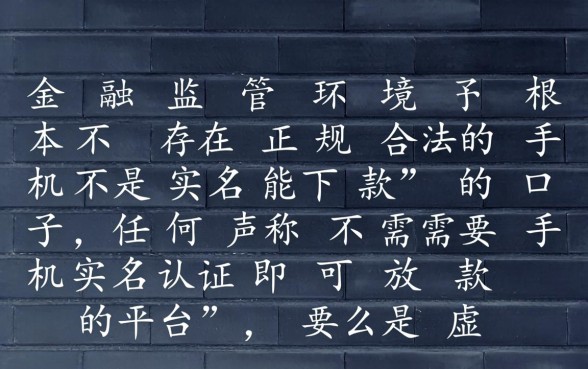 金融监管环境予根
本不存在正规合法的手
机不是实名能下款”的口
子，任何声称不需需要手
机实名认证即可放款
的平台”，要么是虚